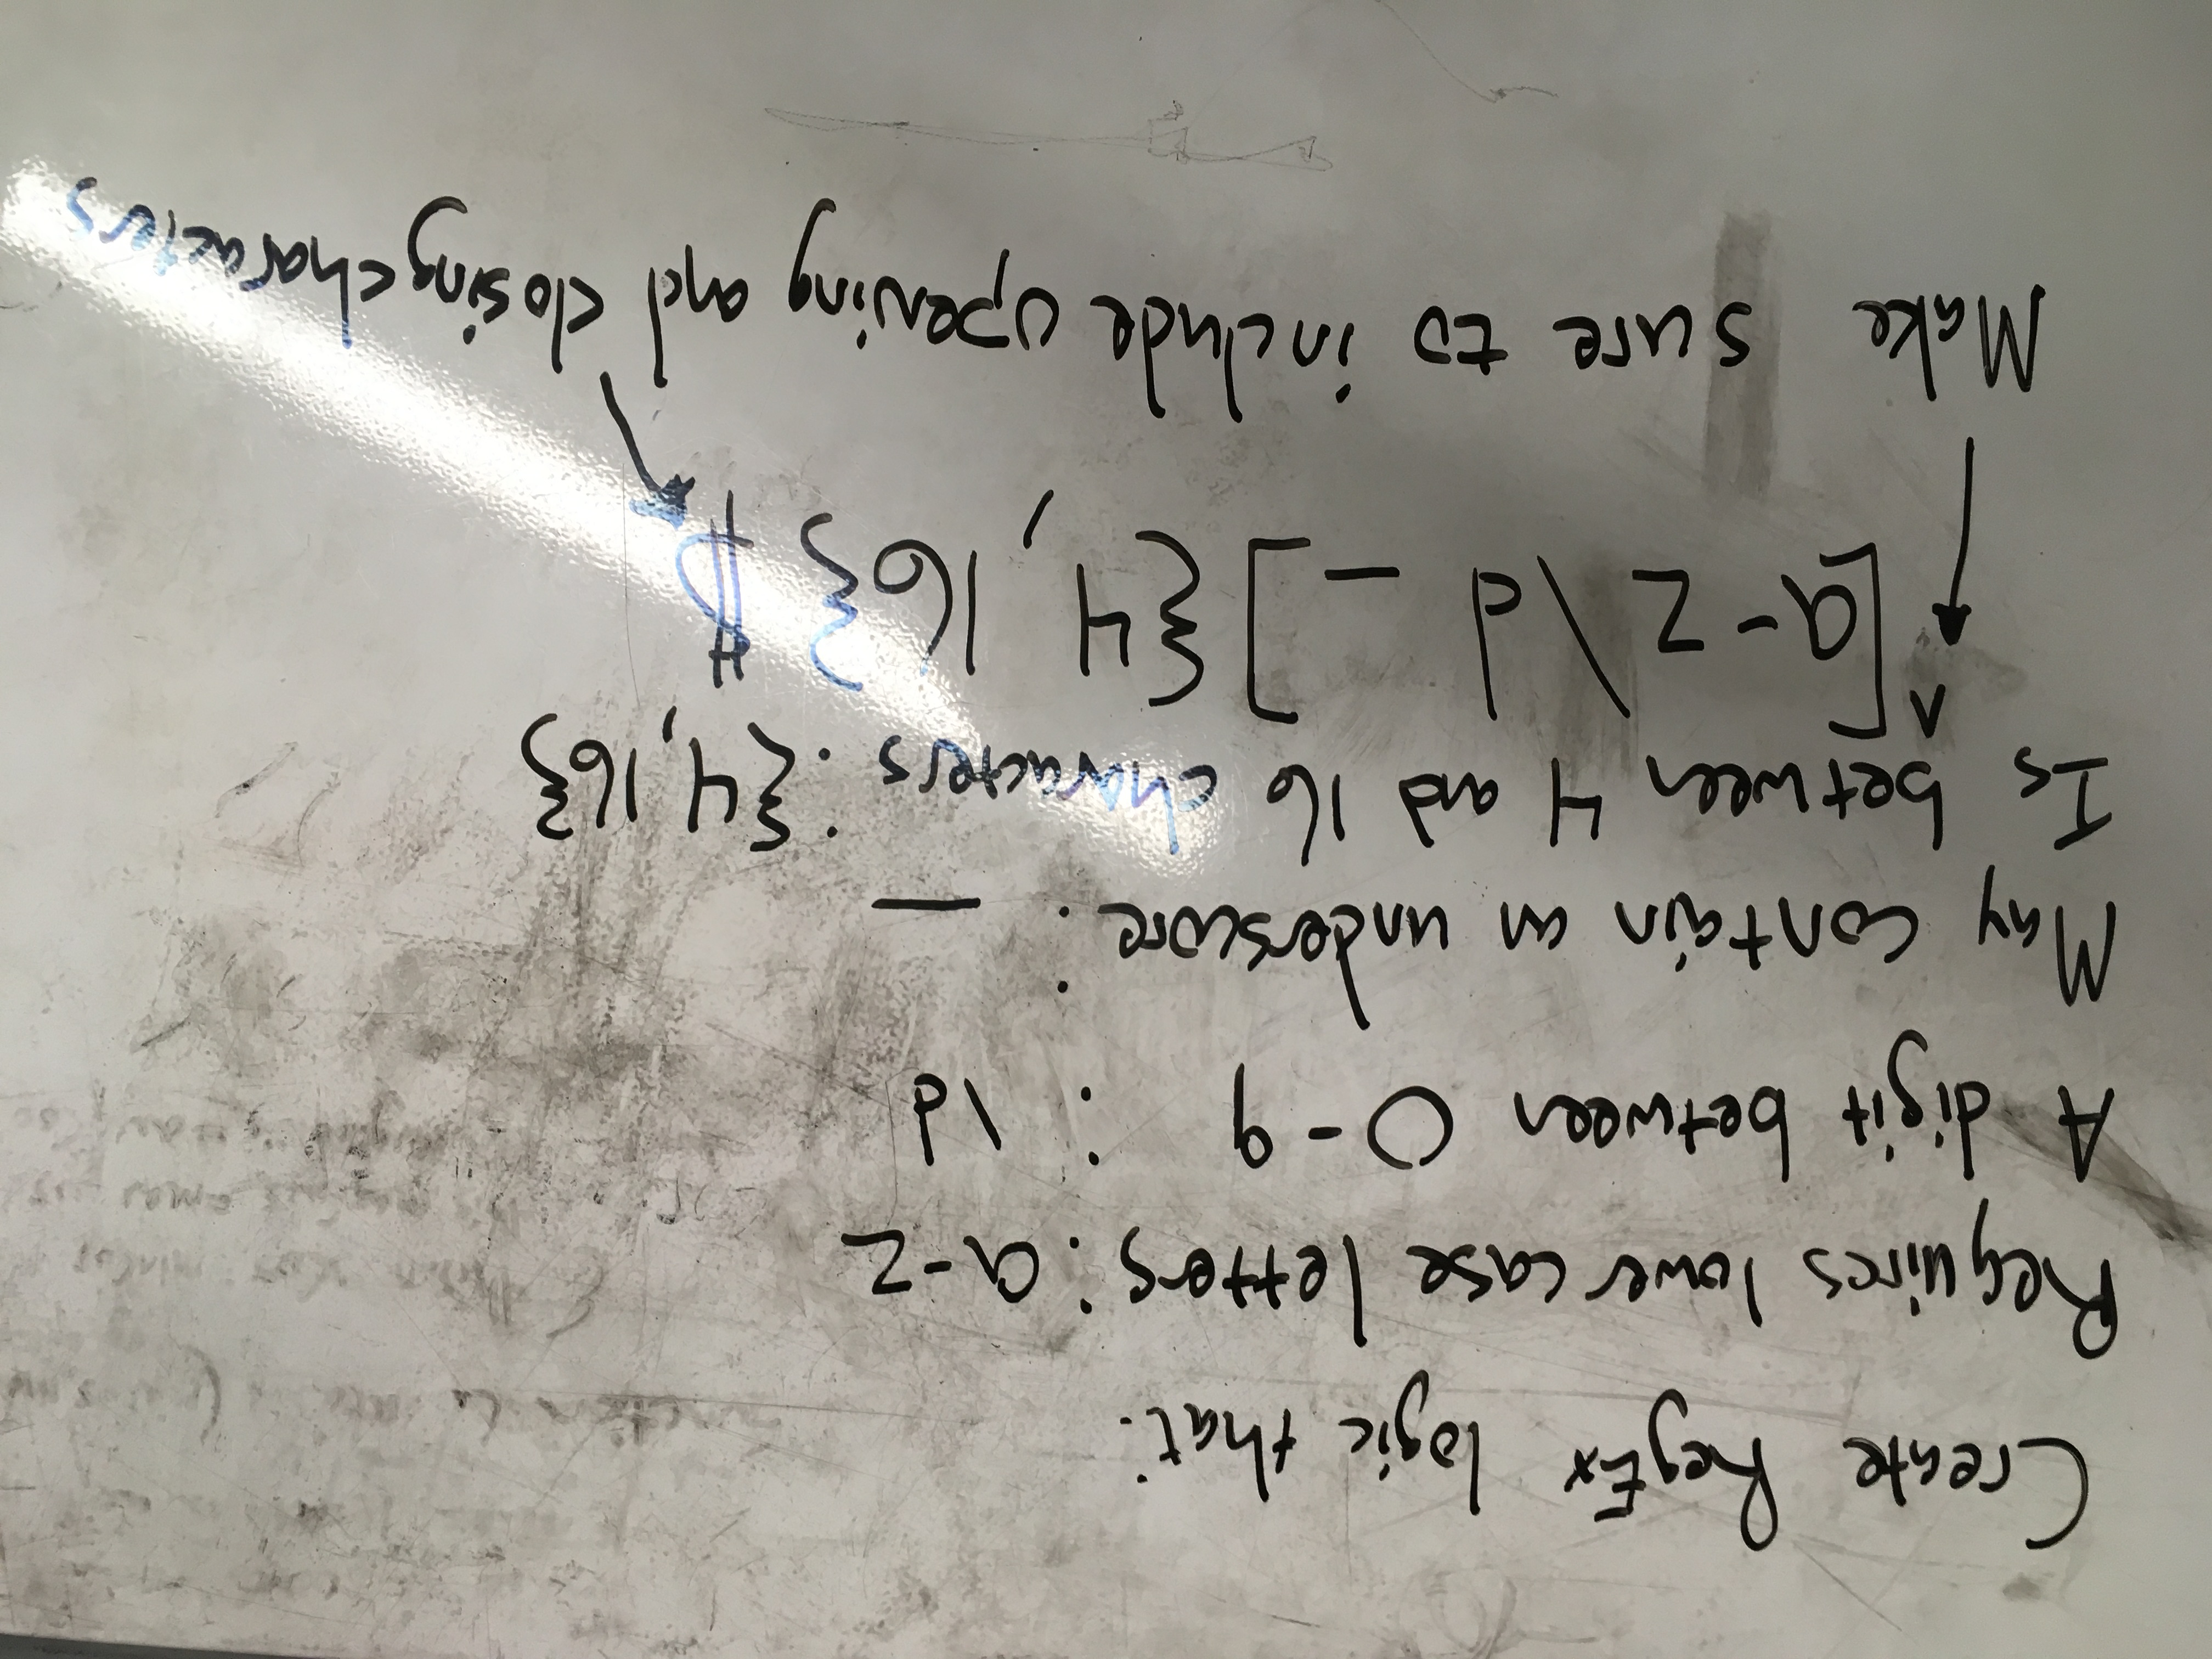 Create RegEx logic that:
Requires lower case letters: a-z
A digit between 0-9 : \d
May contain an underscore: _
Is between 4 and 16 characters: {4,16}
^[a-z\d_]{4,16}$
Make sure to include opening and closing characters